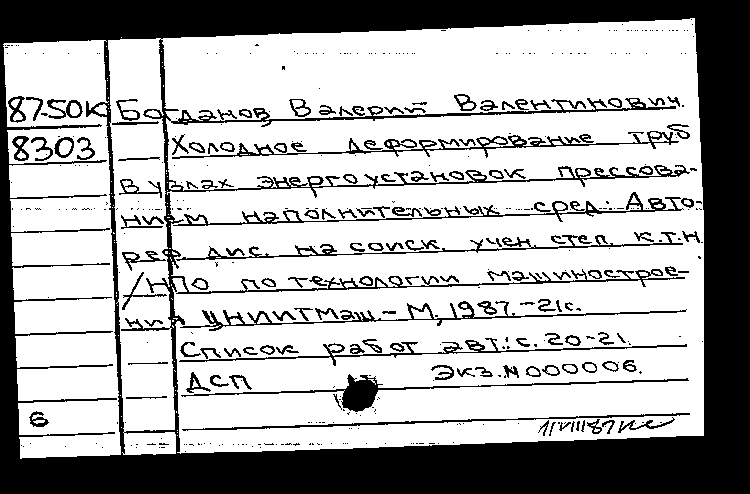 8750К Богданов Валерий Валентинович.
8303 Холодное деформирование труб
в узлах энергоустановок прессова-
нием наполнительных сред: Авто-
реф. дис. на соиск. учен. степ. к.т.н.
/НПО по технологии машинострое-
ния ЦНИИТмаш.- М, 1987.-21с.
Список работ авт.: с. 20-21.
ДСП Экз.N000006.
6